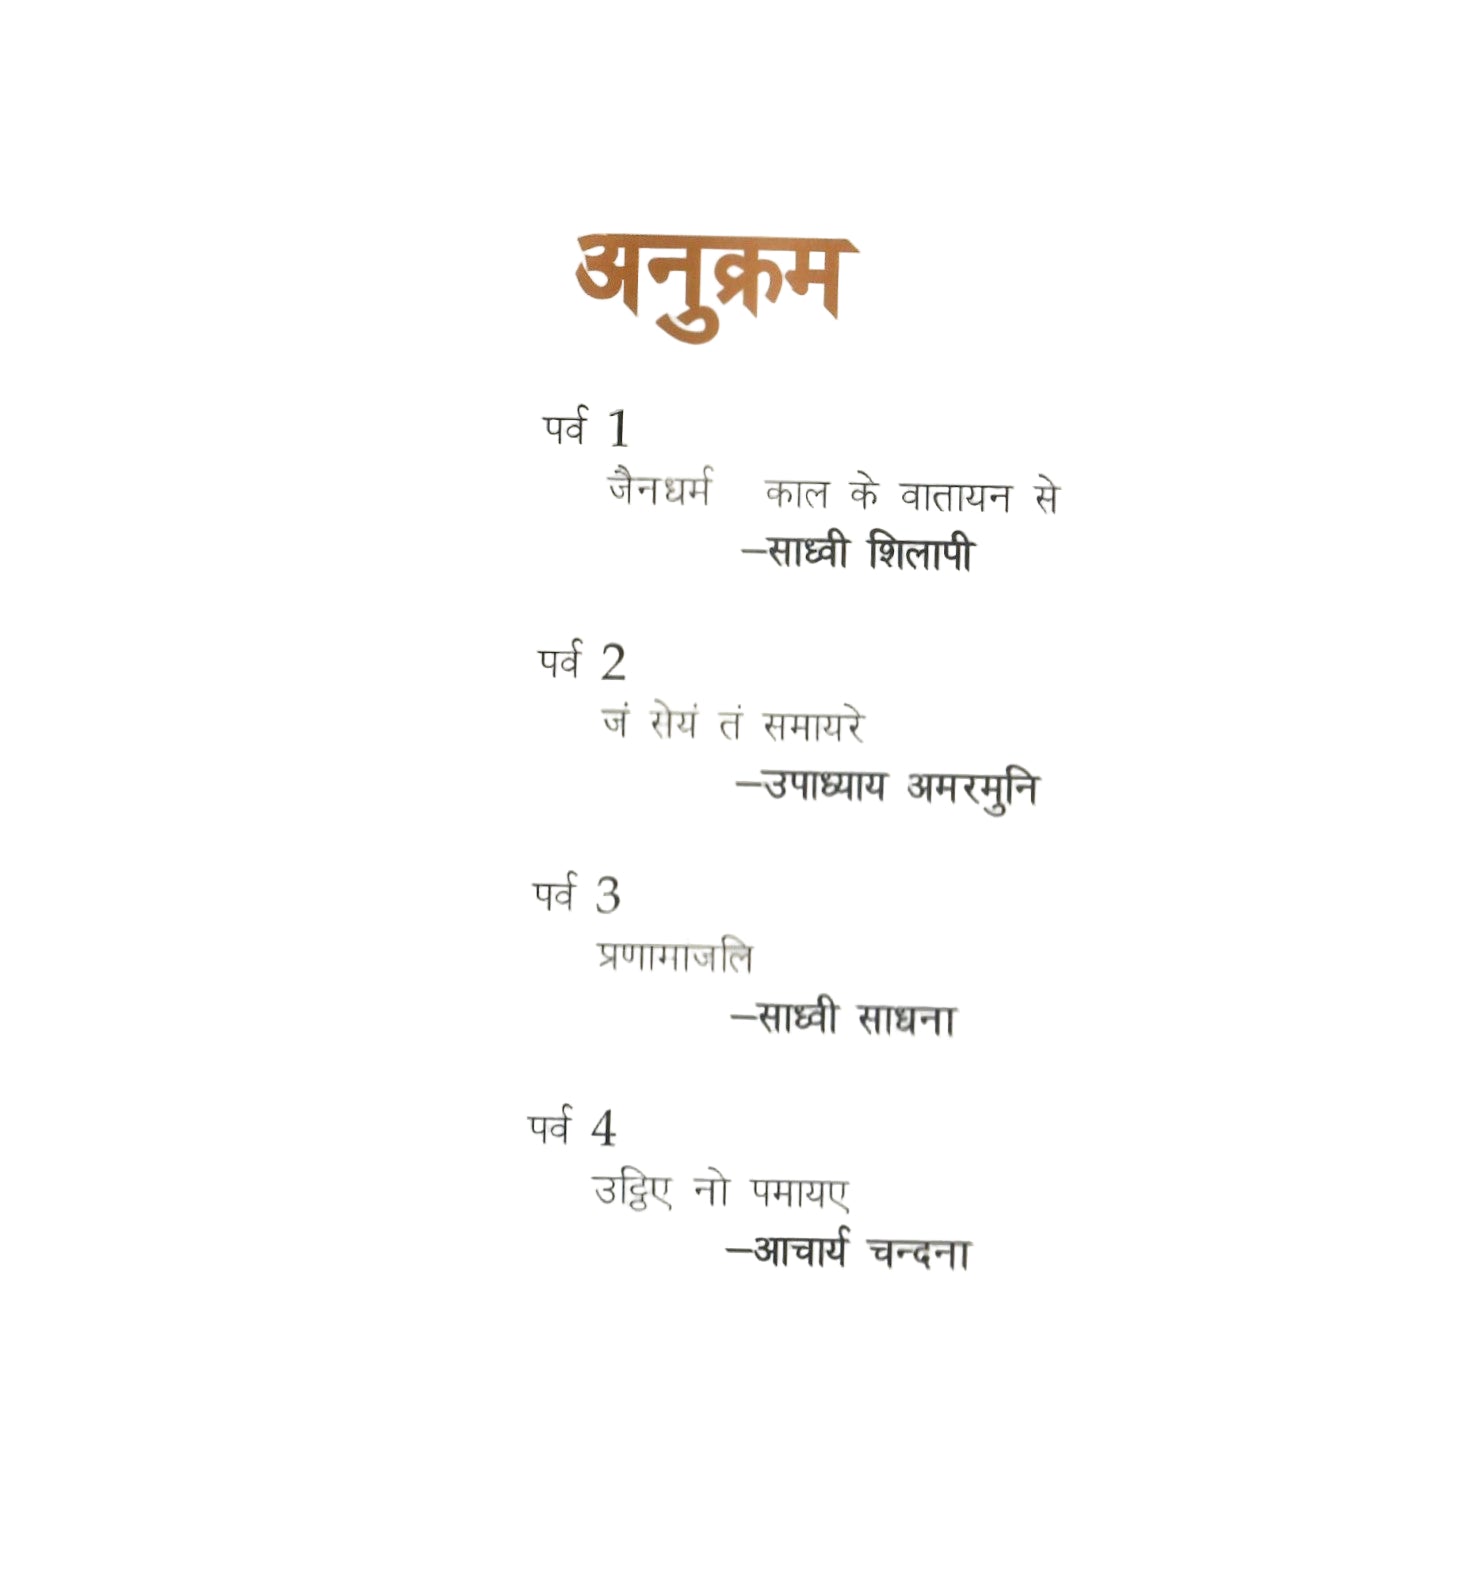 अनुक्रम
पर्व 1
जैनधर्म काल के वातायन से
–साध्वी शिलापी
पर्व 2
जं सेयं तं समायरे
–उपाध्याय अमरमुनि
पर्व 3
प्रणामाजलि
–साध्वी साधना
पर्व 4
उट्ठिए नो पमायए
–आचार्य चन्दना